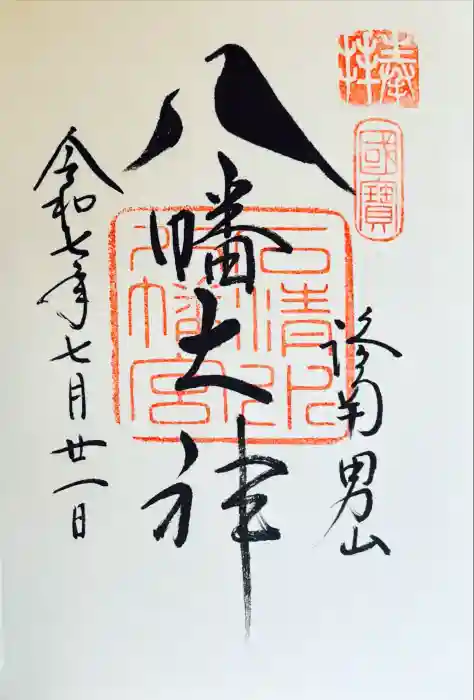 奉拝
國寶
洛南男山
八幡大神
石清水
八幡宮
令和七年七月廿一日